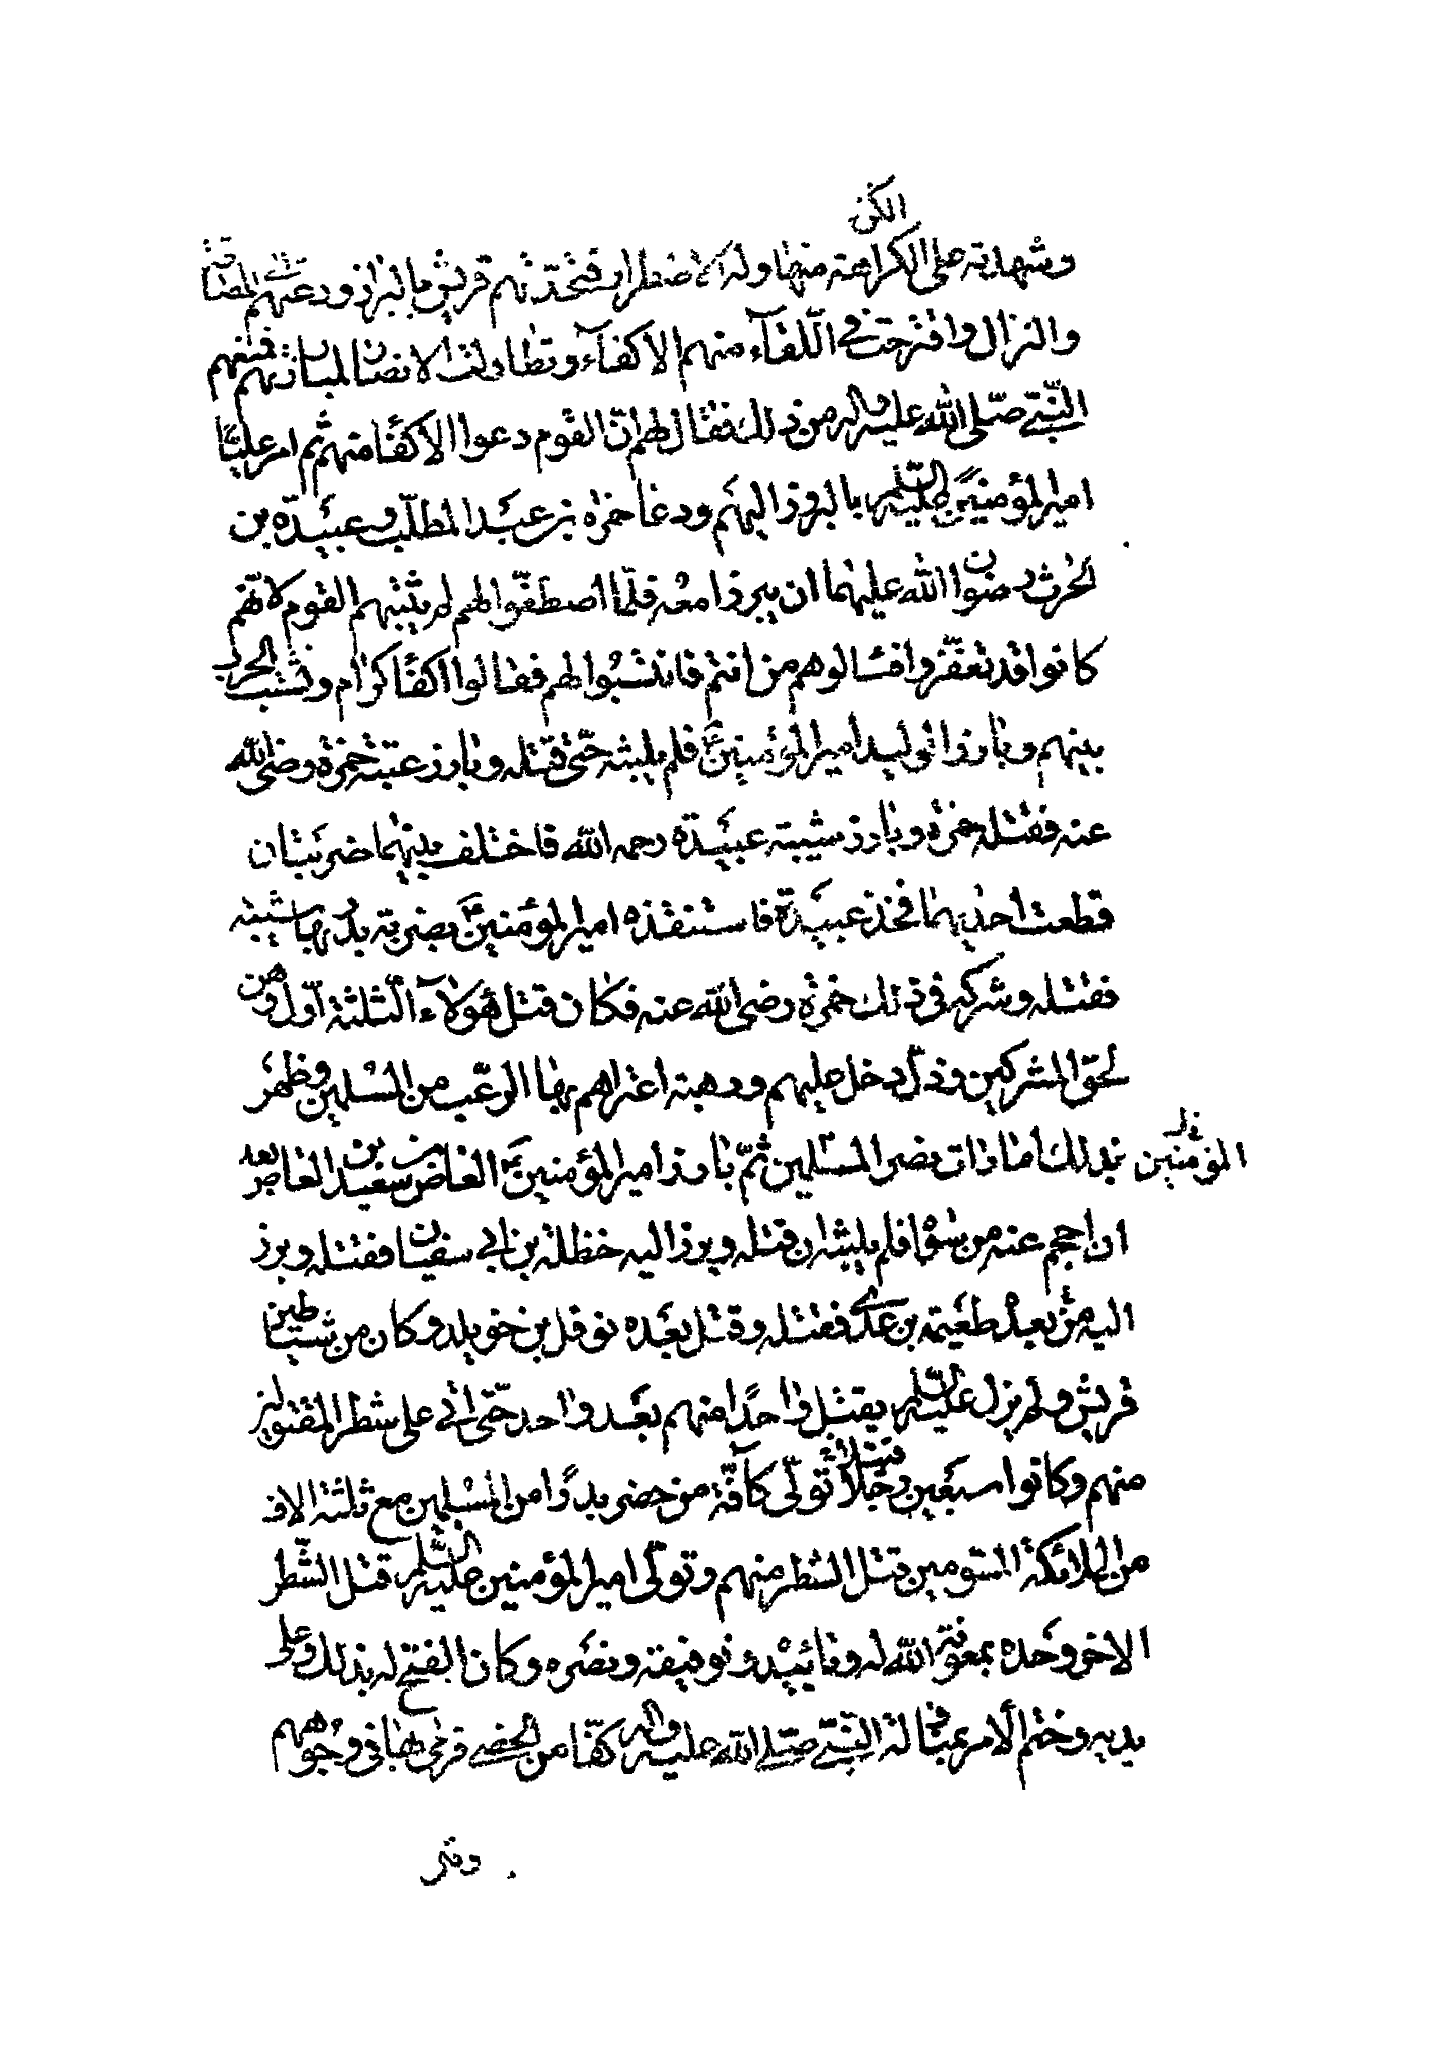 الكره
وشهادته على الكراهة منها وله الاضطرار فتحدتهم قريش بالبراز ودعتهم الى المصافة
والنزال واقترحت في اللقاء منهم الاكفاء وتطاولت الانصار لمبارزتهم فمنعهم
النبي صلى الله عليه واله من ذلك فقال لهم ان القوم دعوا الاكفاء منهم ثم امر عليا
امير المؤمنين عليه السلم بالبروز اليهم ودعا حمزة بن عبد المطلب وعبيدة بن
الحرث رضوان الله عليهما ان يبرزا معه فلما اصطفوا لهم لم يثبتهم القوم لانهم
كانوا قد تغفروا فسالوهم من انتم فانتسبوا لهم فقالوا اكفاء كرام ونشبت الحرب
بينهم وبارز الوليد امير المؤمنين ع فلم يلبثه حتى قتله وبارز عتبة حمزة رضي الله
عنه فقتله حمزة وبارز شيبة عبيدة رحمه الله فاختلف بينهما ضربتان
قطعت احديهما فخذ عبيدة فاستنقذه امير المؤمنين ع بضربة بدر بها شيبة
فقتله وشركه في ذلك حمزة رضي الله عنه فكان قتل هؤلاء الثلثة اول وهن
لحق المشركين وذل دخل عليهم ورهبة اعتراهم بها الرعب من المسلمين وظهر
بذلك امارات نصر المسلمين ثم بارز امير المؤمنين ع العاص بن سعيد بن العاص بعد
المؤمنين
ان احجم عنه من سواه فلم يلبثه ان قتله وبرز اليه حنظلة بن ابي سفيان فقتله وبرز
اليه من بعده طعيمة بن عدي فقتله وقتل بعده نوفل بن خويلد وكان من شياطين
قريش ولم يزل عليه السلم يقتل واحدا منهم بعد واحد حتى اتى على شطر المقتولين
منهم وكانوا سبعين رجلا تولى كافة من حضر بدرا من المسلمين مع ثلثة الاف
من الملائكة المسومين قتل الشطر منهم وتولى امير المؤمنين عليه السلم قتل الشطر
الاخر وحده بمعونة الله له وتاييده وتوفيقه ونصره وكان الفتح له بذلك وعلى
يديه وختم الامر بمناولة النبي صلى الله عليه واله كفا من الحصى فرمى بها في وجوههم